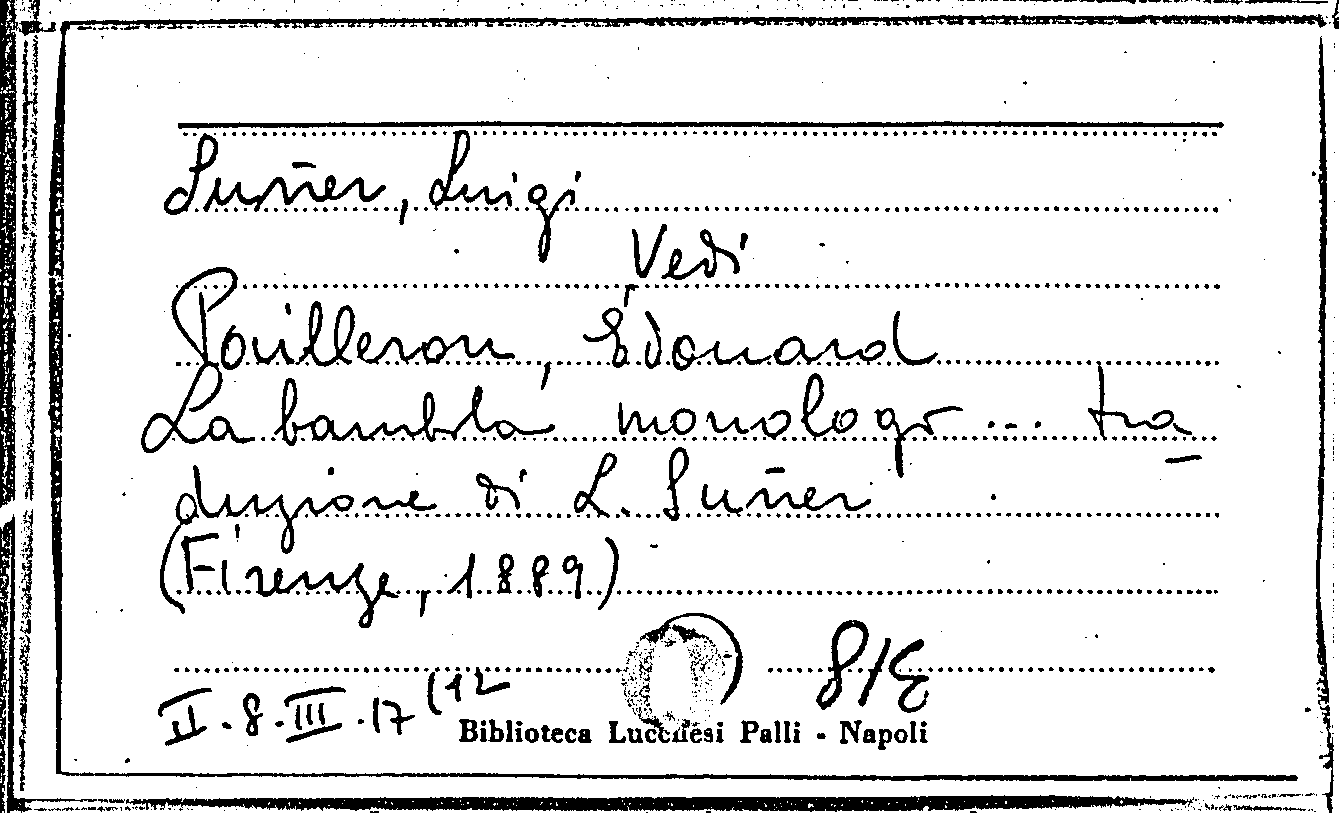 Suñer, Luigi
Vedi
Pailleron, Édouard
La bambola monologo ... tra
duzione di L. Suñer
(Firenze, 1889)
8/E
II.8.III.17 (12
Biblioteca Lucchesi Palli - Napoli